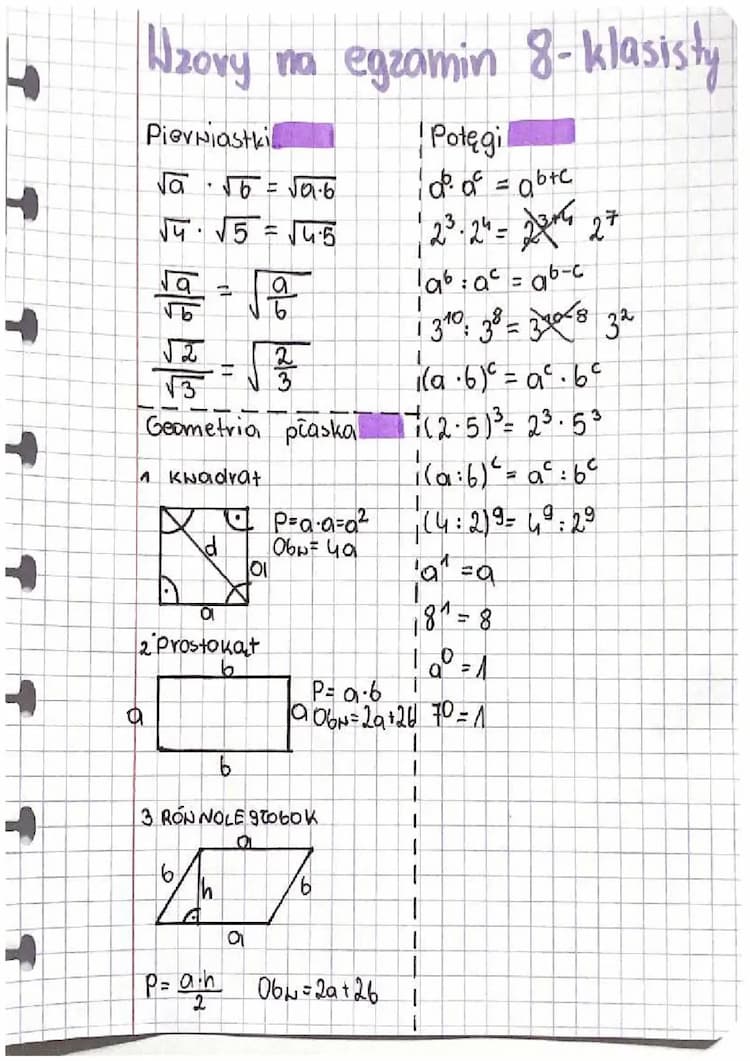 Wzory na egzamin 8-klasisty
Pierwiastki
√a · √b = √a·b
√4 · √5 = √4·5
√a/√b = √a/b
√2/√3 = √2/3
Geometria płaska
1 Kwadrat
d
a
a
P=a·a=a²
Obw=4a
2 Prostokąt
b
a
a
b
P= a·b
Obw=2a+2b
3 RÓWNOLEGŁOBOK
a
b
h
b
a
P= a·h/2 Obw=2a+2b
Potęgi
aᵇ·aᶜ = aᵇ⁺ᶜ
2³·2⁴= 2³⁺⁴ 2⁷
aᵇ:aᶜ = aᵇ⁻ᶜ
3¹⁰:3⁸ = 3¹⁰⁻⁸ 3²
(a·b)ᶜ = aᶜ·bᶜ
(2·5)³= 2³·5³
(a:b)ᶜ = aᶜ:bᶜ
(4:2)⁹= 4⁹:2⁹
a¹ = a
8¹ = 8
a⁰ = 1
7⁰ = 1